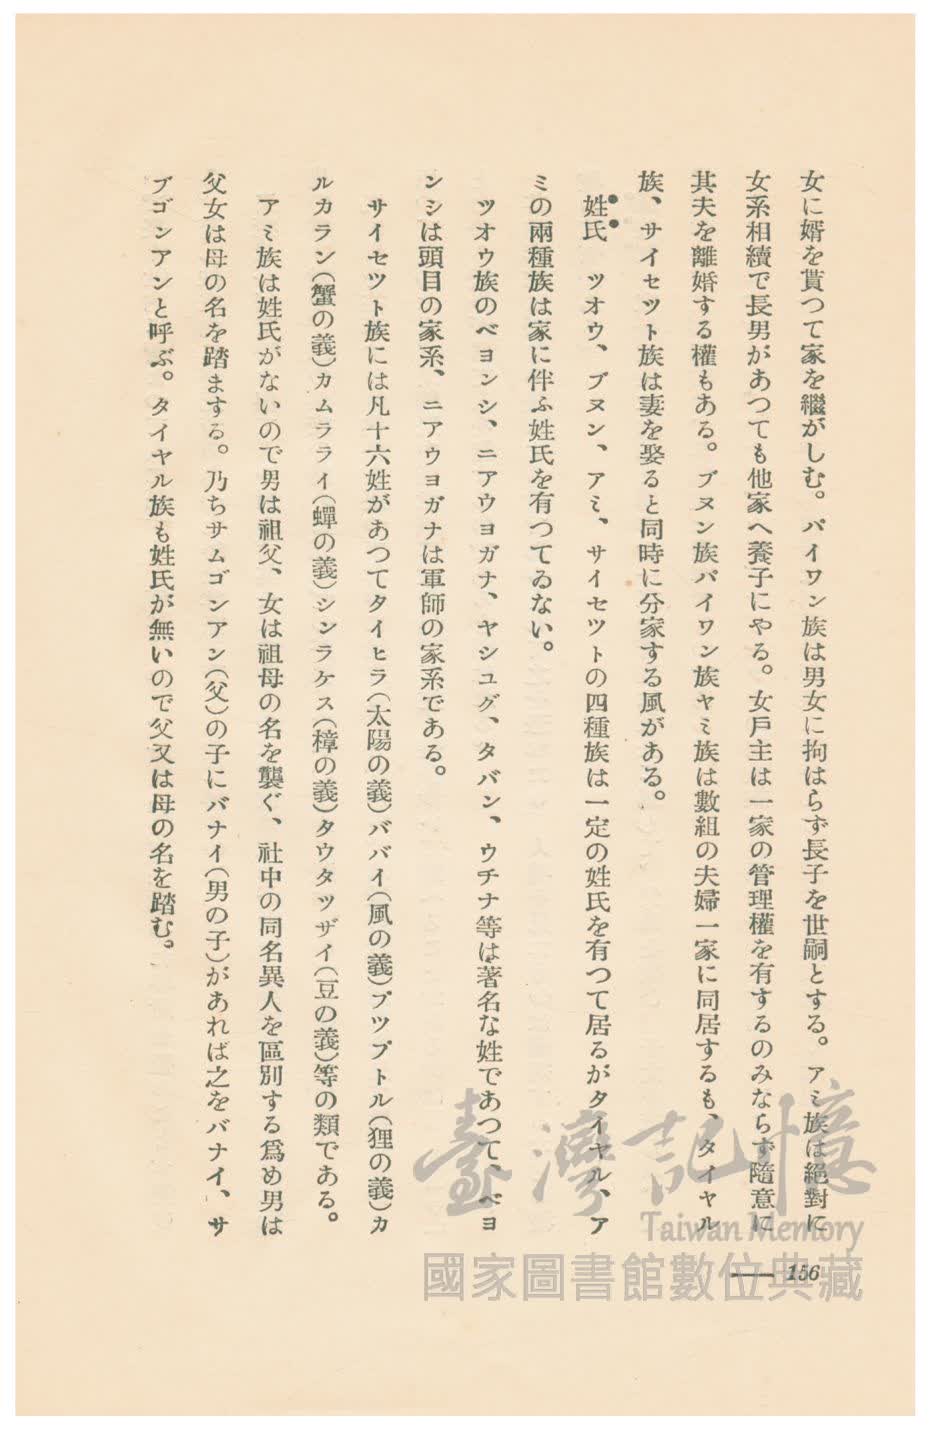 女に婿を貰つて家を繼がしむ。パイワン族は男女に拘はらず長子を世嗣とする。アミ族は絕對に
女系相續で長男があつても他家へ養子にやる。女戶主は一家の管理權を有するのみならず隨意に
其夫を離婚する權もある。ブヌン族パイワン族ヤミ族は數組の夫婦一家に同居するも、タイヤル
族、サイセツト族は妻を娶ると同時に分家する風がある。
姓氏　ツオウ、ブヌン、アミ、サイセツトの四種族は一定の姓氏を有つて居るがタイヤル、ア
ミの兩種族は家に伴ふ姓氏を有つてゐない。
ツオウ族のベヨンシ、ニアウヨガナ、ヤシユグ、タバン、ウチナ等は著名な姓であつて、ベヨ
ンシは頭目の家系、ニアウヨガナは軍師の家系である。
サイセツト族には凡十六姓があつてタイヒラ(太陽の義)ババイ(風の義)ブツブトル(狸の義)カ
ルカラン(蟹の義)カムラライ(蟬の義)シンラケス(樟の義)タウタツザイ(豆の義)等の類である。
アミ族は姓氏がないので男は祖父、女は祖母の名を襲ぐ、社中の同名異人を區別する爲め男は
父女は母の名を踏まする。乃ちサムゴンアン(父)の子にバナイ(男の子)があれば之をバナイ、サ
ブゴンアンと呼ぶ。タイヤル族も姓氏が無いので父又は母の名を踏む。
156
臺灣記憶
Taiwan Memory
國家圖書館數位典藏